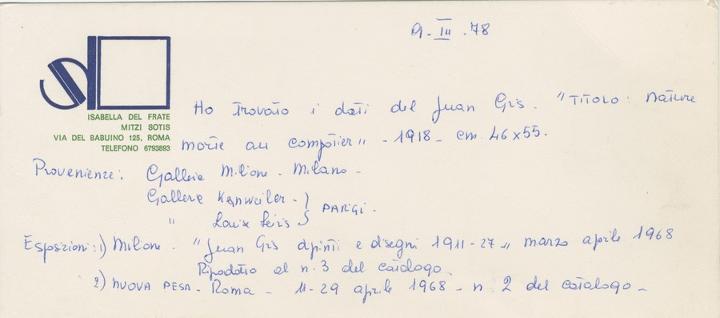 9. III. 78
ISABELLA DEL FRATE
MITZI SOTIS
VIA DEL BABUINO 125, ROMA
TELEFONO 6793693
Ho trovato i dati del Juan Gris. "TITOLO: Nature
morte au compôtier" - 1918 - cm 46x55.
Provenienze: Galleria Milione. Milano -
Gallerie Kanweiler - } PARIGI.
" Louise Leiris
Esposizioni: 1) Milione - "Juan Gris dipinti e disegni 1911-27" marzo aprile 1968
Riprodotto al n. 3 del catalogo.
2) NUOVA PESA - Roma - 11-29 aprile 1968 - n. 2 del catalogo -